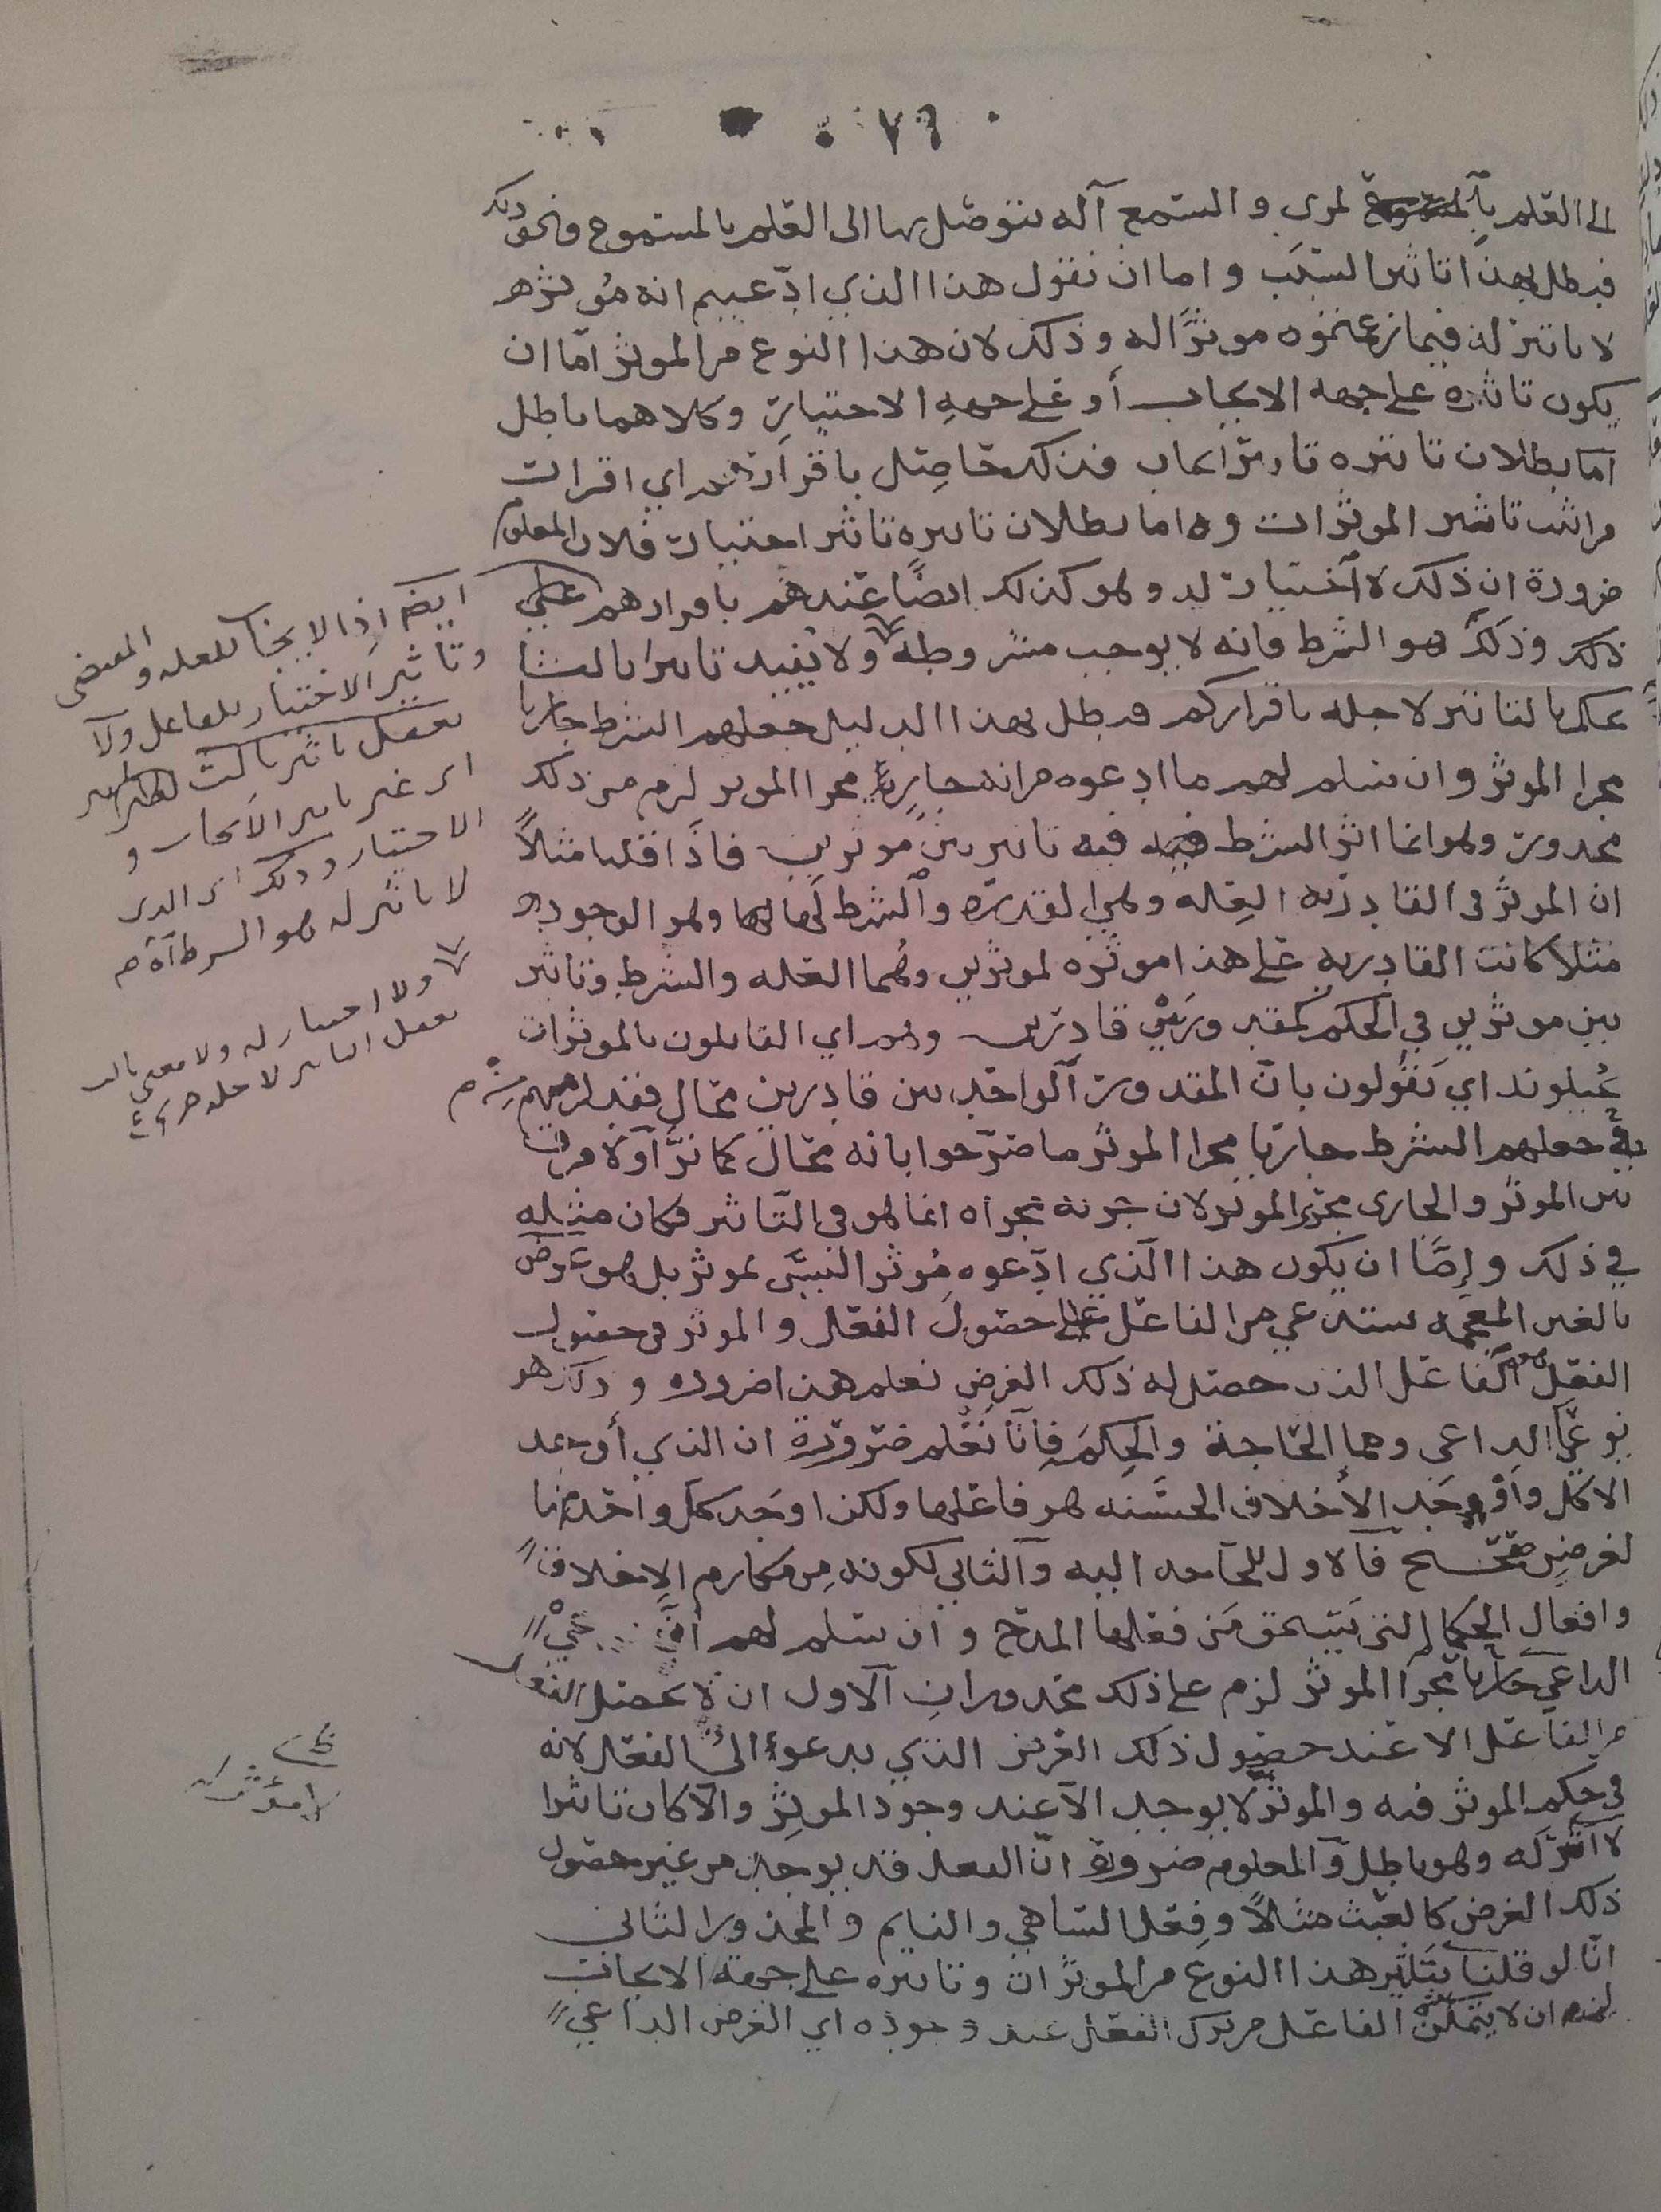 ٧٦
الى العلم بالمرى و السمع آله يتوصل بها الى العلم بالمسموع ونحو ذلك
فبطل بهذا تاثير السبب و اما ان نقول هذا الذي ادعيتم انه موثر
لا تاثير له فيما زعمتموه موثرًا له و ذلك لان هذا النوع من الموثر امّا ان
يكون تاثيره على جهه الايجاب أو على جهة الاختيار و كلاهما باطل
اما بطلان تاثيره تاثير ايجاب فذلك حاصل باقرارهم اي اقرار
من اثبت تاثير الموثرات و اما بطلان تاثيره تاثير اختيار فلان المعلوم
ضرورة ان ذلك لا اختيار له و هو كذلك ايضًا عندهم باقرارهم على
ذلك و ذلك هو الشرط فانه لا يوجب مشروطه و لا يفيد تاثيرا ثالثا
بالتاثير لاجله باقراركم فبطل بهذا الدليل جعلهم الشرط جاريا
مجرا الموثر و ان سلم لهم ما ادعوه من انه جارٍ مجرا الموثر لزم من ذلك
محذور و هو انما اثر الشرط فيه تاثير بين موثرين فاذا قلنا مثالاً
ان الموثر في القادريه العله و هي القدرة و الشرط لها و هو الوجود
مثلاً كانت القادريه على هذا موثره لموثرين و هما العله والشرط و تاثير
بين موثرين في الحكم كمقدور بين قادرين و هم اي القايلون بالموثرات
يحيلونه اي يقولون بانّ المقدور الواحد بين قادرين محال فقد لزمهم
في جعلهم الشرط جاريا مجرا الموثر ما صرّحوا بانه محال كما ترَا و لا فرق
بين الموثر و الجارى مجرى الموثر لان جريه مجراه انما هو في التاثير فكان مثله
في ذلك و إمّا ان يكون هذا الذي ادّعوه مُوثرًا ليس بموثر بل هو غرض
يستدعي من الفاعل حصول الفعل و الموثر في حصول
الفعل الفاعل الذى حصل له ذلك الغرض نعلم هذا ضروره و ذلك هو
نوعَي الداعي وهما الحاجة و الحكمه فانّا نعلم ضرورة ان الذي أوجد
الاكل و أوجد الأخلاق الحسنه هو فاعلها ولكن اوجد كل واحد منها
لغرض صحيح فالاول للحاجه اليه و الثاني لكونه مِن مكارم الاخلاق
و افعال الحكما التي يستحق مَن فعلها المدح و ان سلم لهم
الداعي جاريا مجرا الموثر لزم على ذلك محذوران الاول ان لا يحصل الفعل
من الفاعل الا عند حصول ذلك الغرض الذي يدعوه الى الفعل لانه
في حكم الموثر فيه و الموثر لا يوجد الا عند وجود الموثِر و الا كان تاثيرا
لا اثر له و هو باطل و المعلوم ضرورة انّ الفعل قد يوجد من غير حصول
ذلك الغرض كالعبث مثالاً و فعل الساهي و النايم و المحذور الثانى
انّا لو قلنا بتاثير هذا النوع من الموثرات و تاثيره على جهة الايجاب
لزم ان لا يتمكن الفاعل من ترك الفعل عند وجوده اي الغرض الداعي
ايضا اذ الايجاب للعله و المقتضى
و تاثير الاختيار للفاعل ولا
يعقل تاثير ثالث
اى غير تاثير الايجاب و
الاختيار و ذلك اى الذى
لا تاثير له هو الشرط
ولا اختيار له ولا معنى ثالث
يعقل التاثير لاجله
لامؤثر له